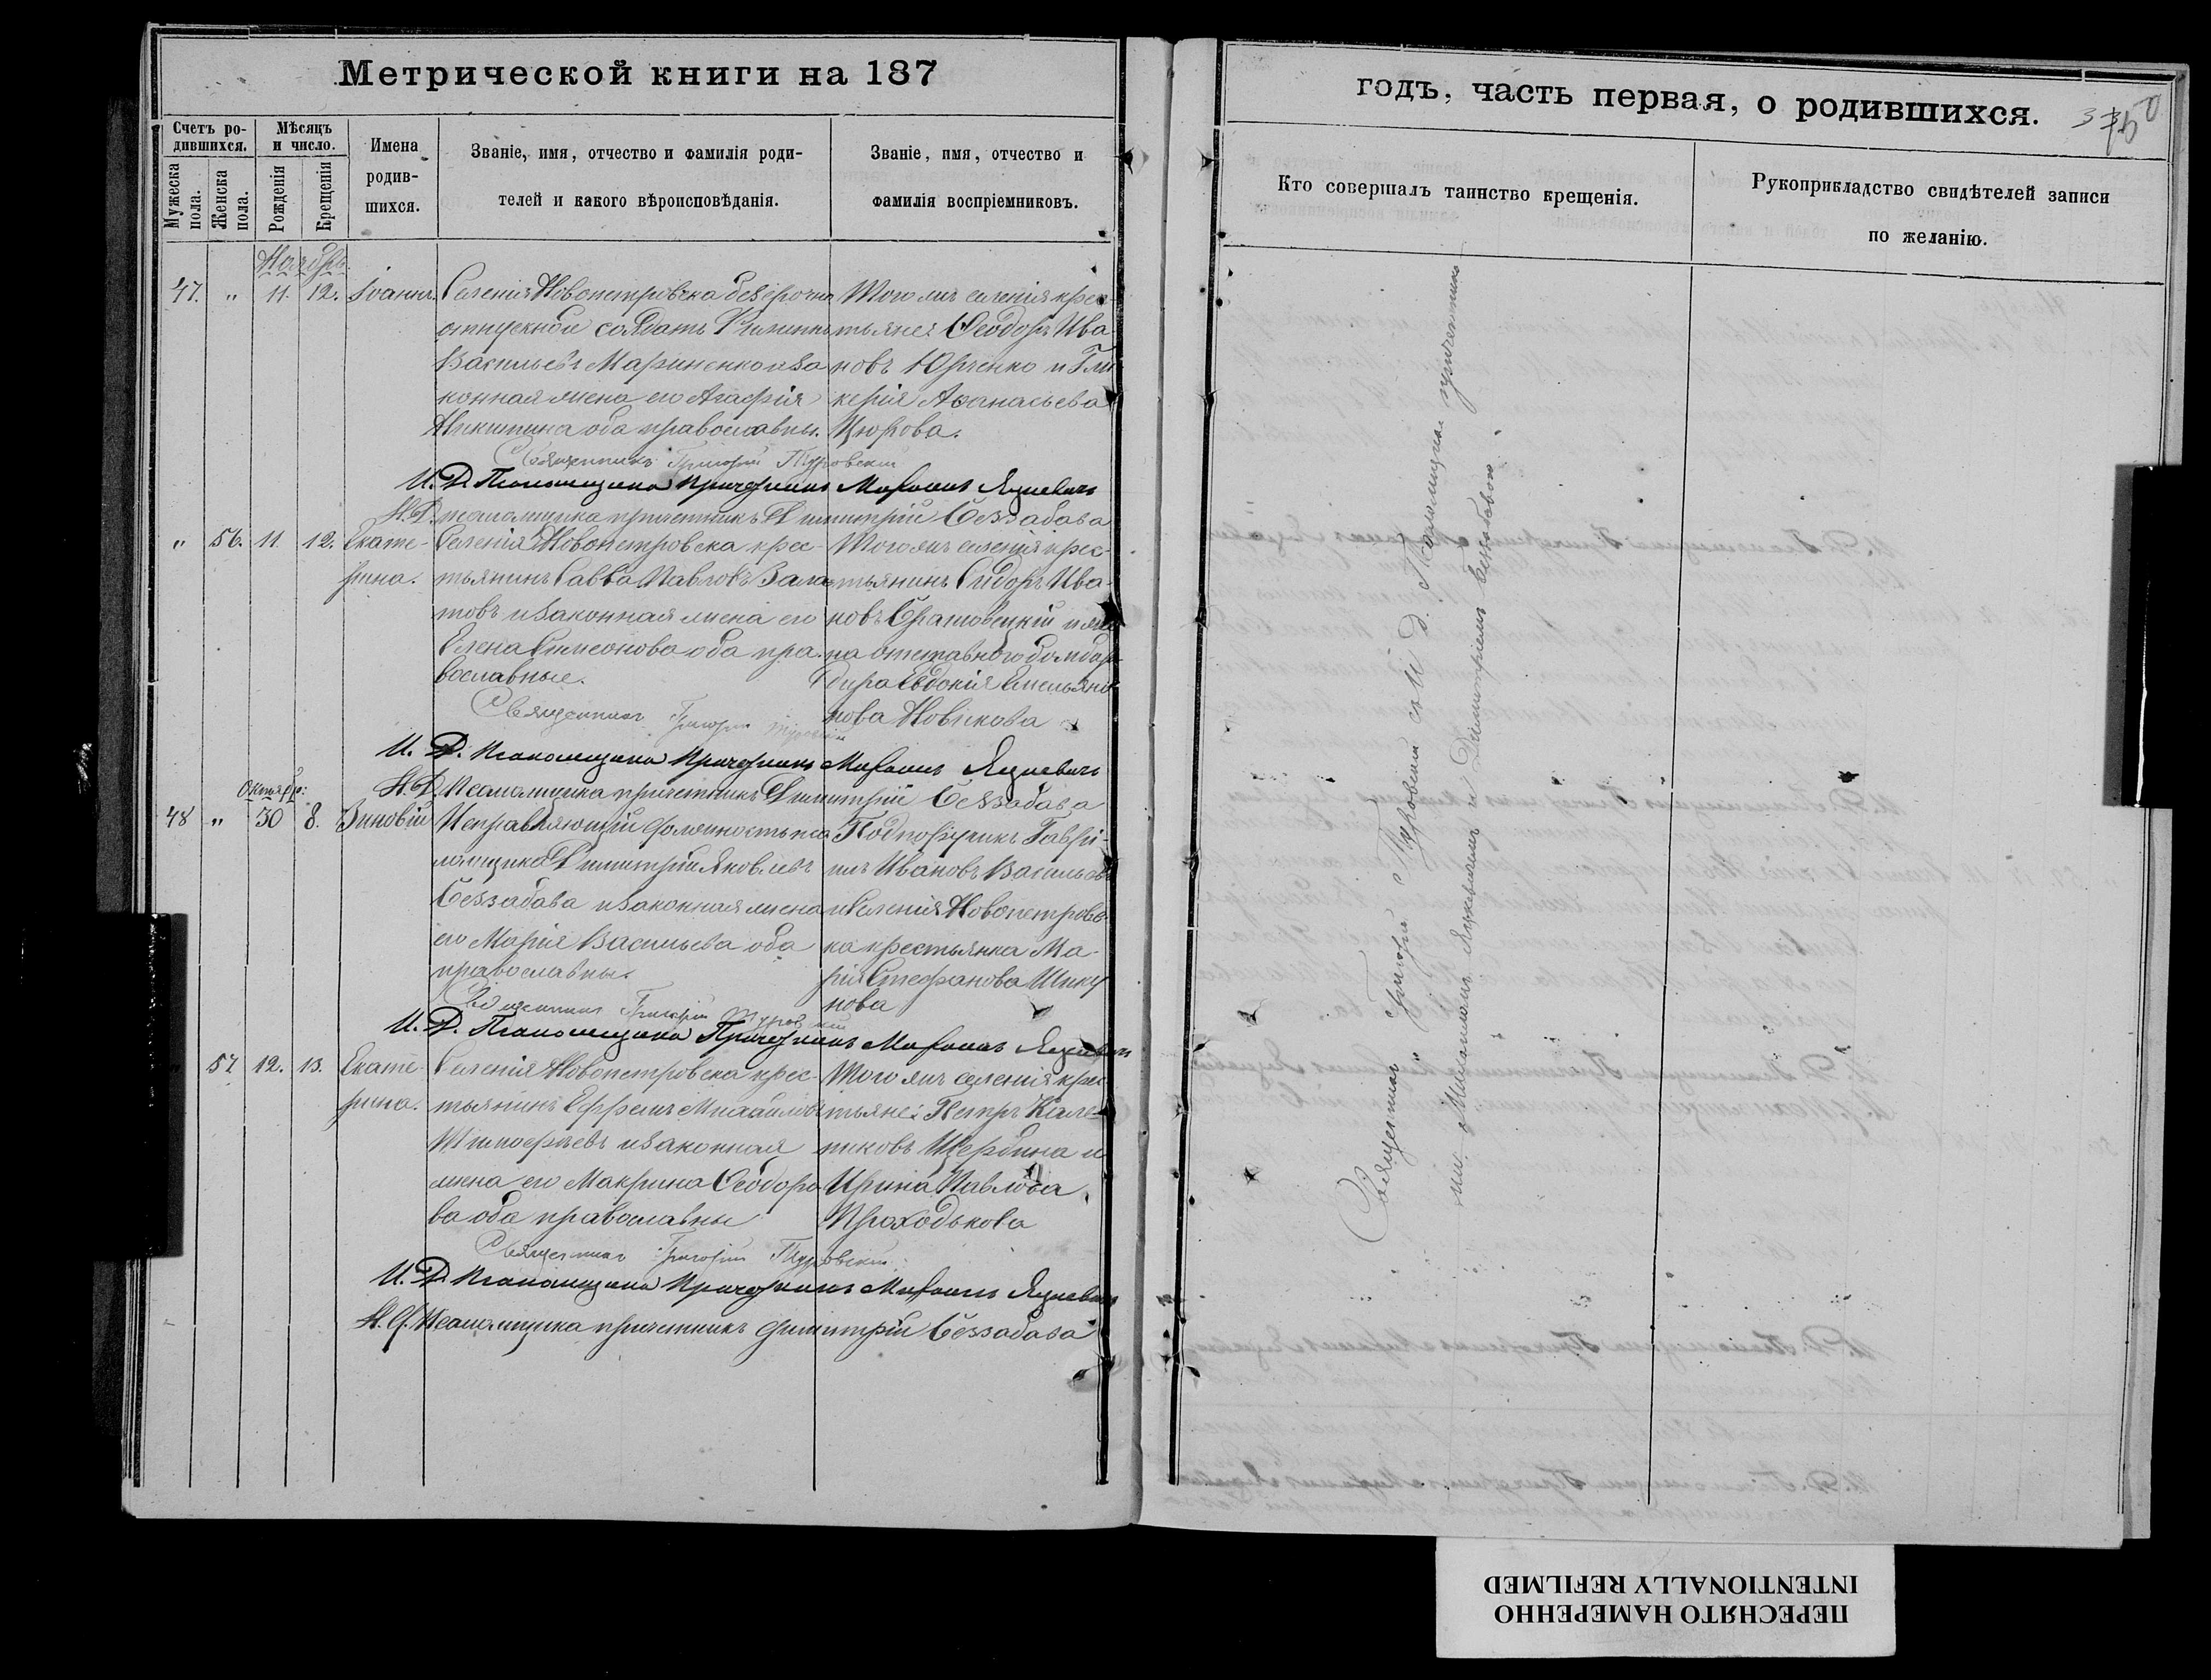 Метрической книги на 187
Счетъ ро-
дившихся.
Мужеска
пола.
Женска
пола.
Мѣсяцъ
и число.
Рожденія
Крещенія
Имена
родив-
шихся.
Званіе, имя, отчество и фамилія роди-
телей и какого вѣроисповѣданія.
Званіе, имя, отчество и
фамилія воспріемниковъ.
Ноябрь.
47. " 11. 12. Іоаннъ.
Селенія Новопетровска безсрочно
отпускной солдатъ
Васильевъ Мариненко и за
конная жена его Агафія
Никитина оба православны.
Того же селенія крес-
тьяне: Ѳеодоръ Ива
новъ Юрченко и Гли
керія Аѳанасьева
Цюрова.
Священникъ Григорій Туровскій
И. Д. Псаломщика Причетникъ Михаилъ Яцкевичъ
И. Д. псаломщика причетникъ Димитрій Беззабава
" 56. 11. 12. Екате-
рина.
Селенія Новопетровска крес-
тьянинъ Савва Павловъ
и законная жена его
Елена Симеонова оба пра-
вославные.
Того же селенія крес-
тьянинъ Сидоръ Ива-
новъ и же
на отставного бомбар-
дира Евдокія Емельяно
нова Новикова
Священникъ Григорій Туровскій
И. Д. Псаломщика Причетникъ Михаилъ Яцкевичъ
И. Д. Псаломщика причетникъ Димитрій Беззабава
Октябр:
48 " 30 8. Зиновій
Исправляющій должность пса
ломщика Димитрій Яковлевъ
Беззабава и законная жена
его Марія Васильева оба
православны.
Гаврі-
илъ Ивановъ Васильевъ
и селенія Новопетровс-
ка крестьянка Ма-
рія Стефанова Шику
нова
Священникъ Григорій Туровскій
И. Д. Псаломщика Причетникъ Михаилъ Яцкевичъ
" 57 12. 13. Екате-
рина.
Селенія Новопетровска крес-
тьянинъ Ефремъ Михайловъ
Тимофѣевъ и законная
жена его Макрина Ѳеодоро
ва оба православны
Того же селенія крес-
тьяне: Петръ Кале-
никовъ Щербина и
Ирина Павлова
Проходькова
Священникъ Григорій Туровскій
И. Д. Псаломщика Причетникъ Михаилъ Яцкевичъ
И. Д. Псаломщика причетникъ Димитрій Беззабава
годъ, часть первая, о родившихся.
Кто совершалъ таинство крещенія.
Рукоприкладство свидѣтелей записи
по желанію.
Священникъ Григорій Туровскій съ И. Д. Псаломщика причетника
ми Михаиломъ Яцкевичемъ и Димитріемъ Беззабавою.
ПЕРЕСНЯТО НАМЕРЕННО
INTENTIONALLY REFILMED